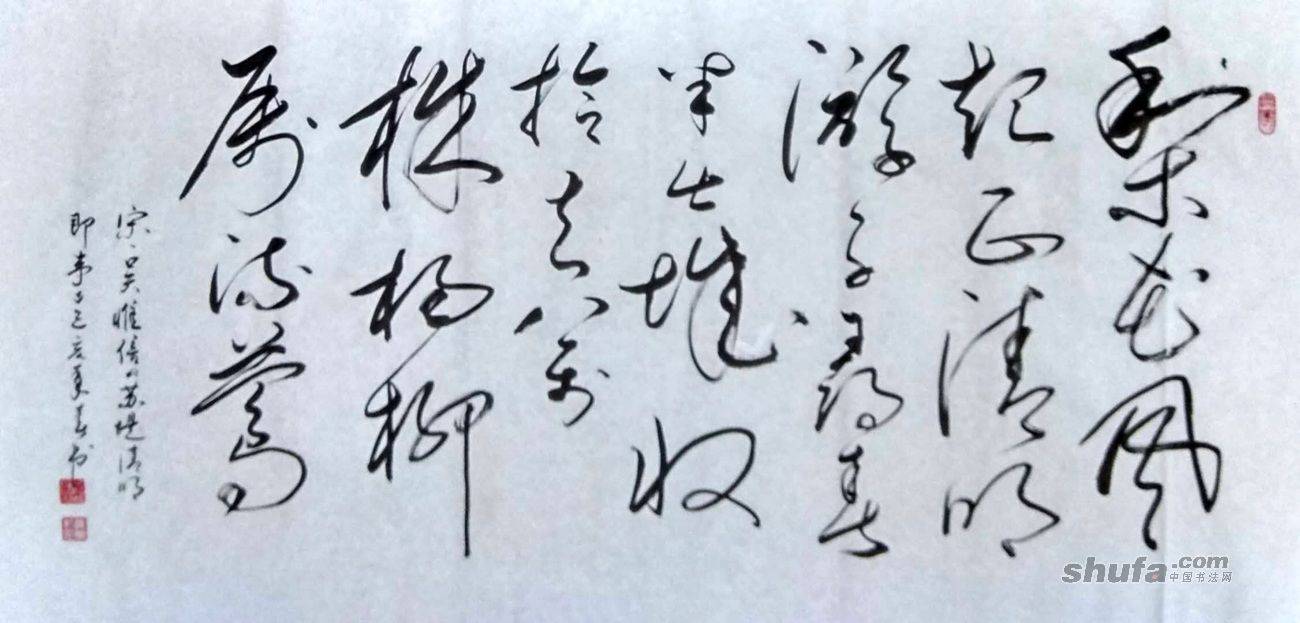 梨花风
起正清明
游子寻春
半出城收
拾去万
株杨柳
属流莺
宋·吴惟信·苏堤清明
即事己亥夏书
shufa.com
中国书法网